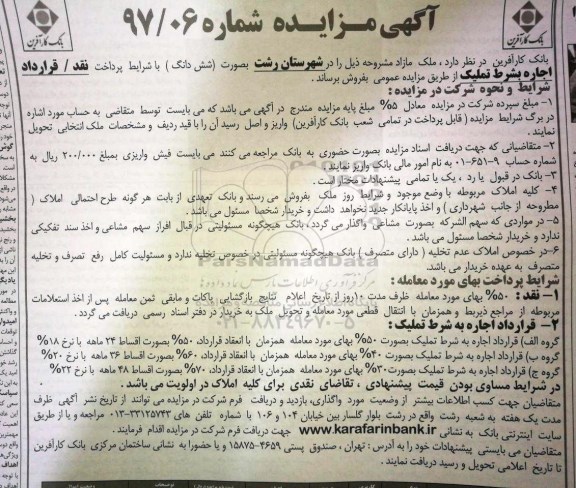 آگهی مزایده شماره ۹۷/۰۶
بانک کارآفرین
بانک کارآفرین در نظر دارد، ملک مازاد مشروحه ذیل را در شهرستان رشت بصورت (شش دانگ) با شرایط پرداخت نقد / قرارداد
اجاره بشرط تملیک از طریق مزایده عمومی بفروش برساند.
شرایط و نحوه شرکت در مزایده :
۱- مبلغ سپرده شرکت در مزایده معادل ۵% مبلغ پایه مزایده مندرج در آگهی می باشد که می بایست توسط متقاضی به حساب مورد اشاره
در برگ شرایط مزایده (قابل پرداخت در تمامی شعب بانک کارآفرین) واریز و اصل رسید آن را با قید ردیف و مشخصات ملک انتخابی تحویل
نمایند.
۲- متقاضیانی که جهت دریافت اسناد مزایده بصورت حضوری به بانک مراجعه می کنند می بایست فیش واریزی بمبلغ ۲۰۰/۰۰۰ ریال به
شماره حساب ۹-۶۵۱-۰۱ به نام امور مالی بانک واریز نمایند.
۳- بانک در قبول یا رد ، یک یا تمامی پیشنهادات مختار است.
۴- کلیه املاک مربوطه با وضع موجود و شرایط روز ملک بفروش می رسند و بانک تعهدی از بابت هر گونه طرح احتمالی املاک (
مطروحه از جانب شهرداری) و اخذ پایانکار جدید نخواهد داشت و خریدار شخصا مسئول می باشد.
۵- در مواردی که سهم الشرکه بصورت مشاعی واگذار می گردد ، بانک هیچگونه مسئولیتی در قبال افراز سهم مشاعی و اخذ سند تفکیکی
ندارد و خریدار شخصا مسئول می باشد.
۶-در خصوص املاک عدم تخلیه (دارای متصرف) بانک هیچگونه مسئولیتی در خصوص تخلیه ندارد و مسئولیت کامل رفع تصرف و تخلیه
متصرف به عهده خریدار می باشد.
شرایط پرداخت بهای مورد معامله :
۱- نقد : ۵۰% بهای مورد معامله ظرف مدت ۱۰روز از تاریخ اعلام نتایج بازگشایی پاکات و مابقی ثمن معامله پس از اخذ استعلامات
مربوطه از مراجع ذیربط و همزمان با انتقال قطعی مورد معامله و تحویل ملک به خریدار در دفتر اسناد رسمی دریافت می گردد.
۲- قرارداد اجاره به شرط تملیک :
گروه الف) قرارداد اجاره به شرط تملیک بصورت ۵۰% بهای مورد معامله همزمان با انعقاد قرارداد، ۵۰% بصورت اقساط ۲۴ ماهه با نرخ ۱۸%
گروه ب) قرارداد اجاره به شرط تملیک بصورت ۴۰% بهای مورد معامله همزمان با انعقاد قرارداد، ۶۰% بصورت اقساط ۳۶ ماهه با نرخ ۲۰%
گروه ج) قرارداد اجاره به شرط تملیک بصورت ۳۰% بهای مورد معامله همزمان با انعقاد قرارداد، ۷۰% بصورت اقساط ۴۸ ماهه با نرخ ۲۲%
در شرایط مساوی بودن قیمت پیشنهادی ، تقاضای نقدی برای کلیه املاک در اولویت می باشد.
متقاضیان جهت کسب اطلاعات بیشتر از وضعیت مورد واگذاری، بازدید و دریافت فرم شرکت در مزایده می توانند از تاریخ نشر آگهی ظرف
مدت یک هفته به شعبه رشت واقع در رشت بلوار گلسار بین خیابان ۱۰۴ و ۱۰۶ با شماره تلفن های ۳۳۱۲۵۷۴۳-۰۱۳ مراجعه و یا از طریق
سایت اینترنتی بانک به نشانی www.karafarinbank.ir جهت دریافت فرم شرکت در مزایده اقدام فرمایند.
متقاضیان می بایستی پیشنهادات خود را به آدرس : تهران ، صندوق پستی ۴۶۵۹-۱۵۸۷۵ و یا حضورا به نشانی ساختمان مرکزی بانک کارآفرین
تا تاریخ اعلامی تحویل و رسید دریافت نمایند.
ParsNamadData
۰۲۱-۸۸۳۴۹۶۷۰-۵